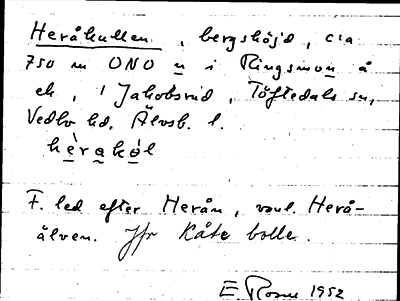 Heråkullen, bergshöjd, c:a
750 m ONO n i Ringsmon å
ek, 1 Jakobsrud, Töftedals sn,
Vedbo hd, Älvsb. l.
hèrakål
F. led efter Herån, vanl. Herå-
älven. Jfr Kåte bolle.
E Rosn 1952